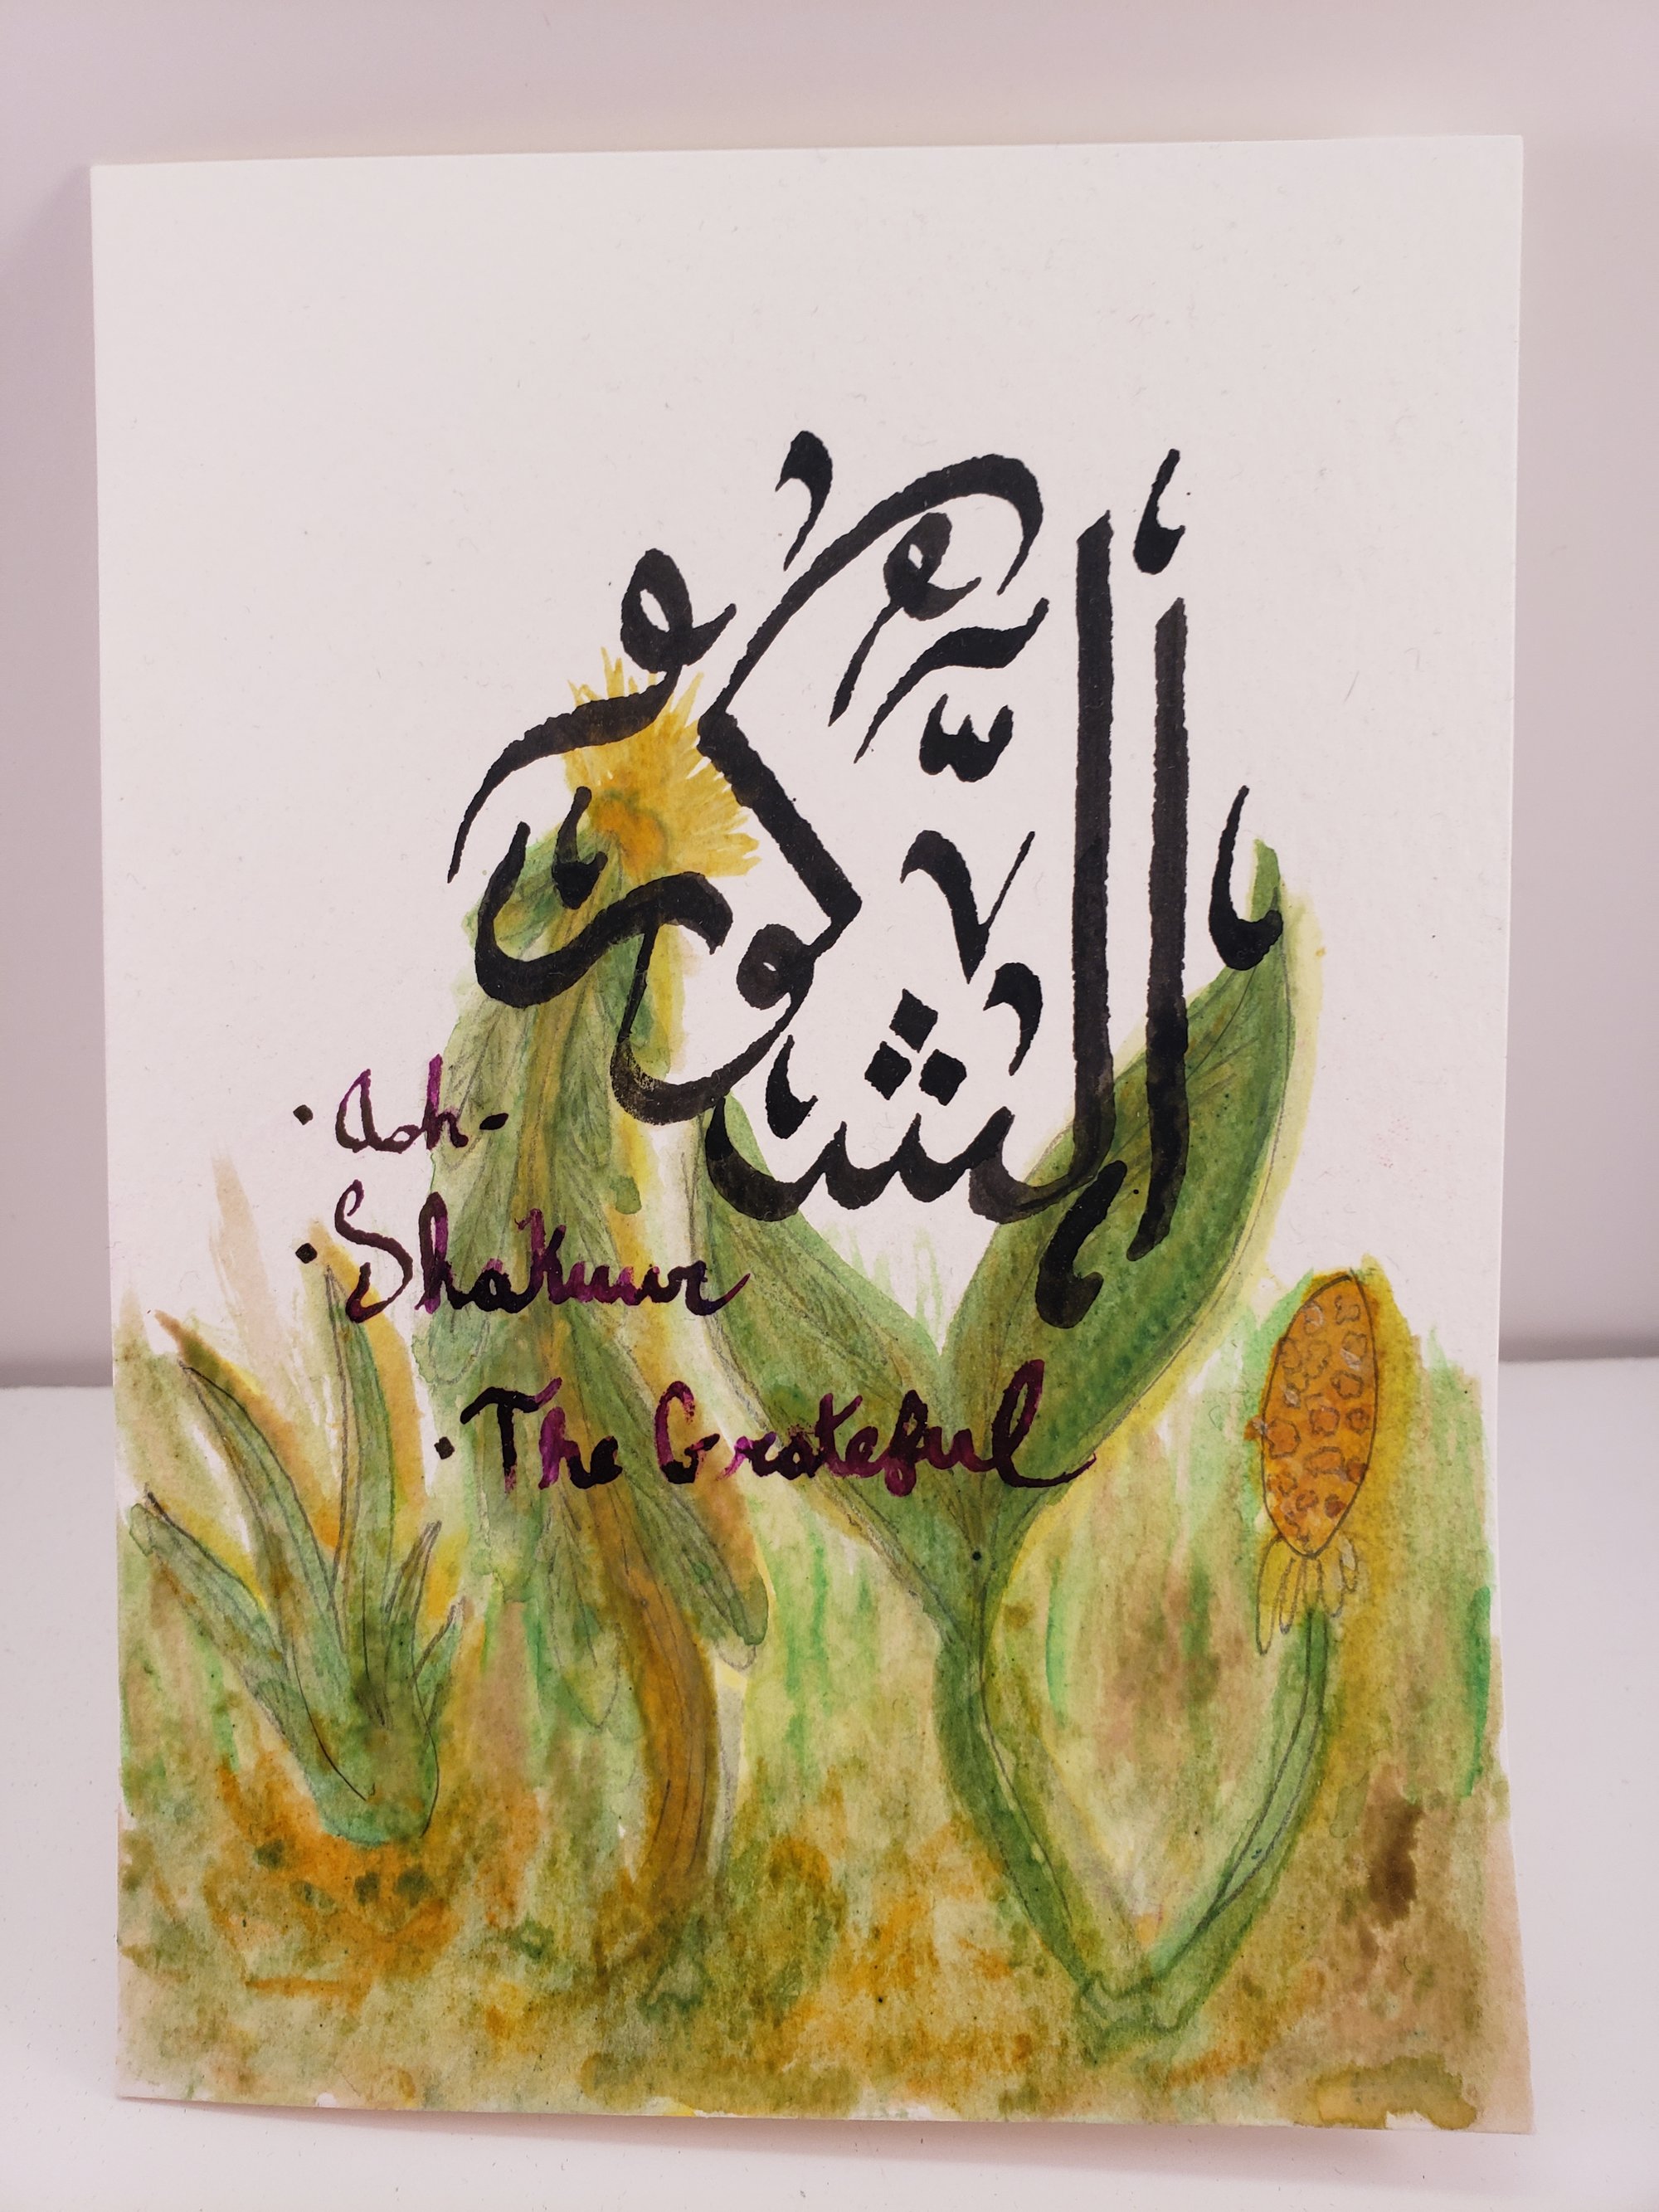 الشَّكُورُ
Ash-
Shakuur
The Grateful